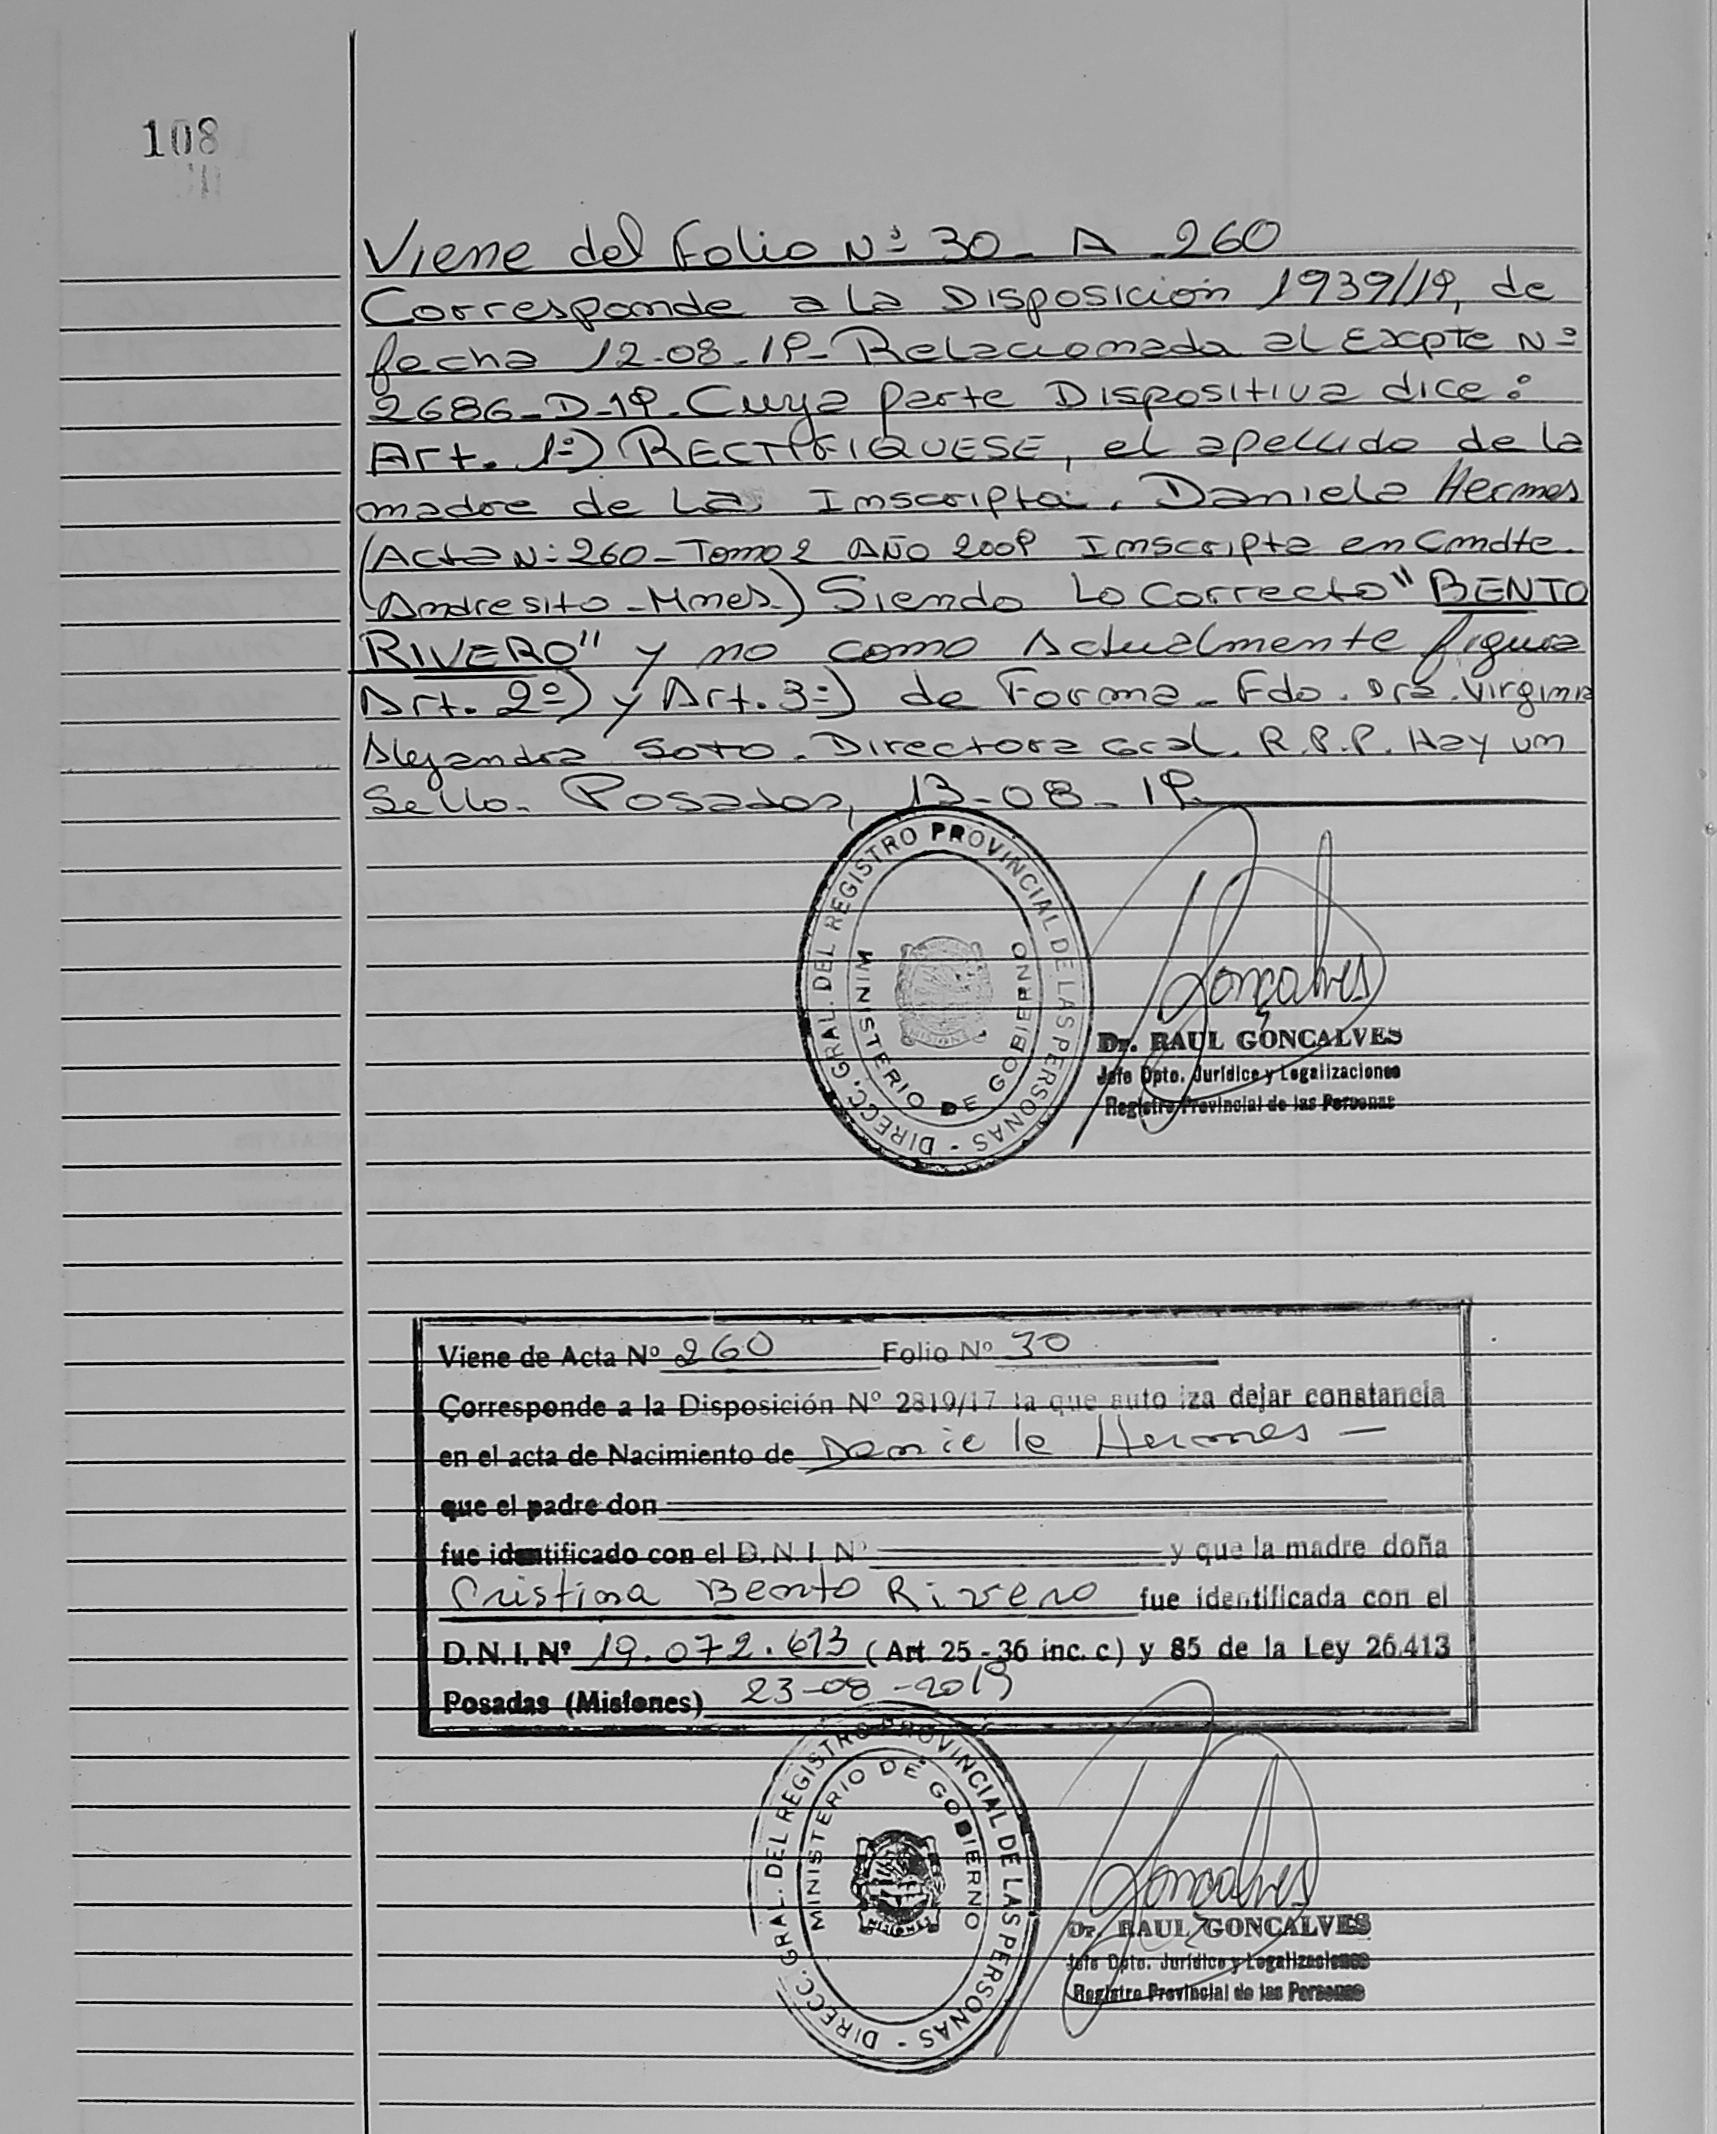 108
Viene del Folio Nº 30 - A 260
Corresponde a la Disposición 1939/19, de
fecha 12-08-19- Relacionada al Expte Nº
2686-D-19. Cuya parte Dispositiva dice:
Art. 1º) RECTIFIQUESE, el apellido de la
madre de la Inscripta. Daniela Hermes
(Acta Nº 260 - Tomo 2 AÑO 2009 Inscripta en Cmdte.
Andresito - Mnes.) Siendo Lo Correcto "BENTO
RIVERO" y no como Actualmente figura
Art. 2º) y Art. 3º) de Forma - Fdo. Dra. Virginia
Alejandra Soto. Directora Gral. R.P.P. Hay un
Sello. Posadas, 13-08-19
DIRECC. GRAL. DEL REGISTRO PROVINCIAL DE LAS PERSONAS -
MINISTERIO DE GOBIERNO
MISIONES
Gonçalves
Dr. RAUL GONÇALVES
Jefe Dpto. Jurídico y Legalizaciones
Registro Provincial de las Personas
Viene de Acta Nº 260 Folio Nº 30
Corresponde a la Disposición Nº 2819/17 la que auto iza dejar constancia
en el acta de Nacimiento de Daniela Hermes -
que el padre don
fue identificado con el D.N.I. Nº y que la madre doña
Cristina Bento Rivero fue identificada con el
D.N.I. Nº 19.072.613 (Art. 25 - 36 inc. c) y 85 de la Ley 26.413
Posadas (Misiones) 23-08-2019
DIRECC. GRAL. DEL REGISTRO PROVINCIAL DE LAS PERSONAS -
MINISTERIO DE GOBIERNO
MISIONES
Gonçalves
Dr. RAUL GONÇALVES
Jefe Dpto. Jurídico y Legalizaciones
Registro Provincial de las Personas